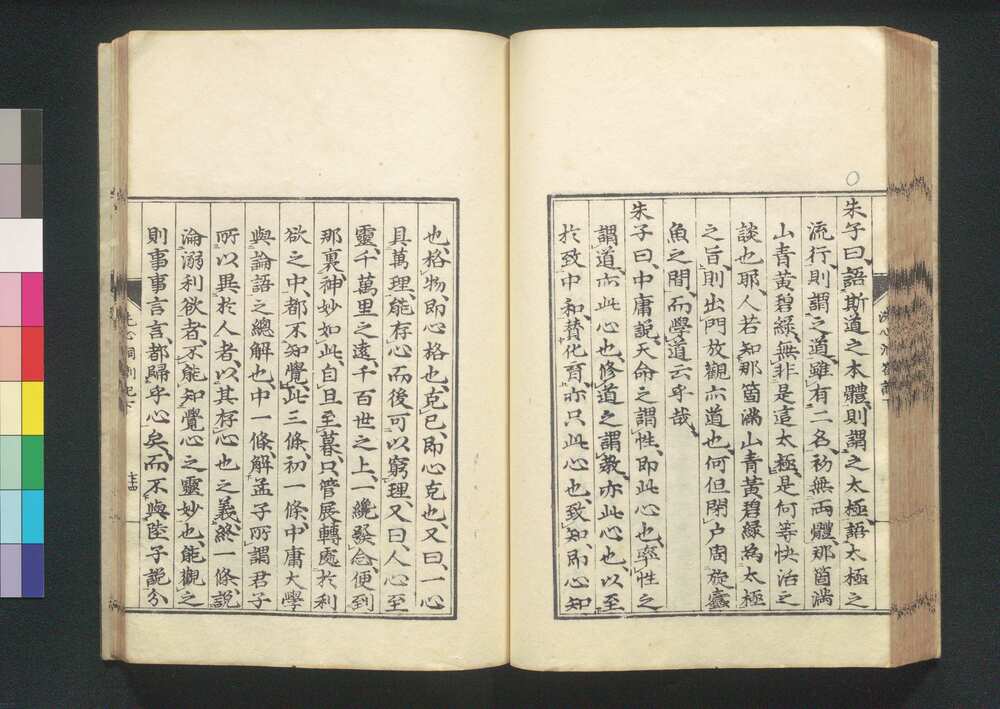 朱子曰、語斯道之本體、則謂之太極、語太極之
流行、則謂之道、雖有二名、初無兩體、那箇滿
山青黃碧綠、無非是這太極、是何等快活之
談也耶、人若知那箇滿山青黃碧綠為太極
之旨、則出門放觀亦道也、何但閉戶周旋蠹
魚之間、而學道云乎哉、
朱子曰、中庸說、天命之謂性、即此心也、率性之
謂道、亦此心也、修道之謂教、亦此心也、以至
於致中和、贊化育、亦只此心也、致知、即心知
也、格物、即心格也、克己、即心克也、又曰、一心
具萬理、能存心、而後可以窮理、又曰、人心至
靈、千萬里之遠、千百世之上、一纔發念、便到
那裏、神妙如此、自旦至暮、只管展轉處於利
欲之中、都不知覺、此三條、初一條、中庸大學
與論語之總解也、中一條、解孟子所謂君子
所以異於人者、以其存心也之義、終一條、說
淪溺利欲者、不能知覺心之靈妙也、能觀之
則事事言言、都歸乎心矣、而不與陸子說分
洗心洞劄記下